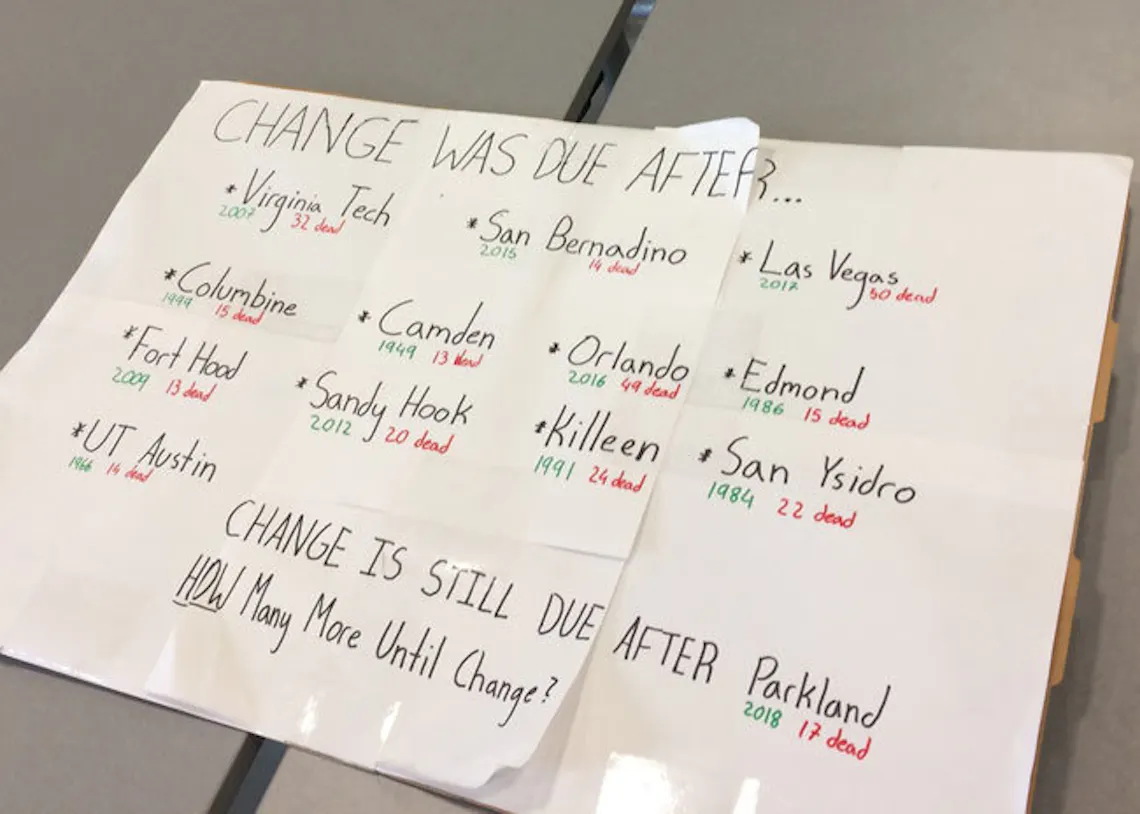 CHANGE WAS DUE AFTER...
* Virginia Tech
2007 32 dead
* San Bernadino
2015 14 dead
* Las Vegas
2017 50 dead
* Columbine
1999 15 dead
* Camden
1949 13 dead
* Orlando
2016 49 dead
* Edmond
1986 15 dead
* Fort Hood
2009 13 dead
* Sandy Hook
2012 20 dead
* Killeen
1991 24 dead
* San Ysidro
1984 22 dead
* UT Austin
1966 14 dead
CHANGE IS STILL DUE AFTER Parkland
2018 17 dead
HOW Many More Until Change?